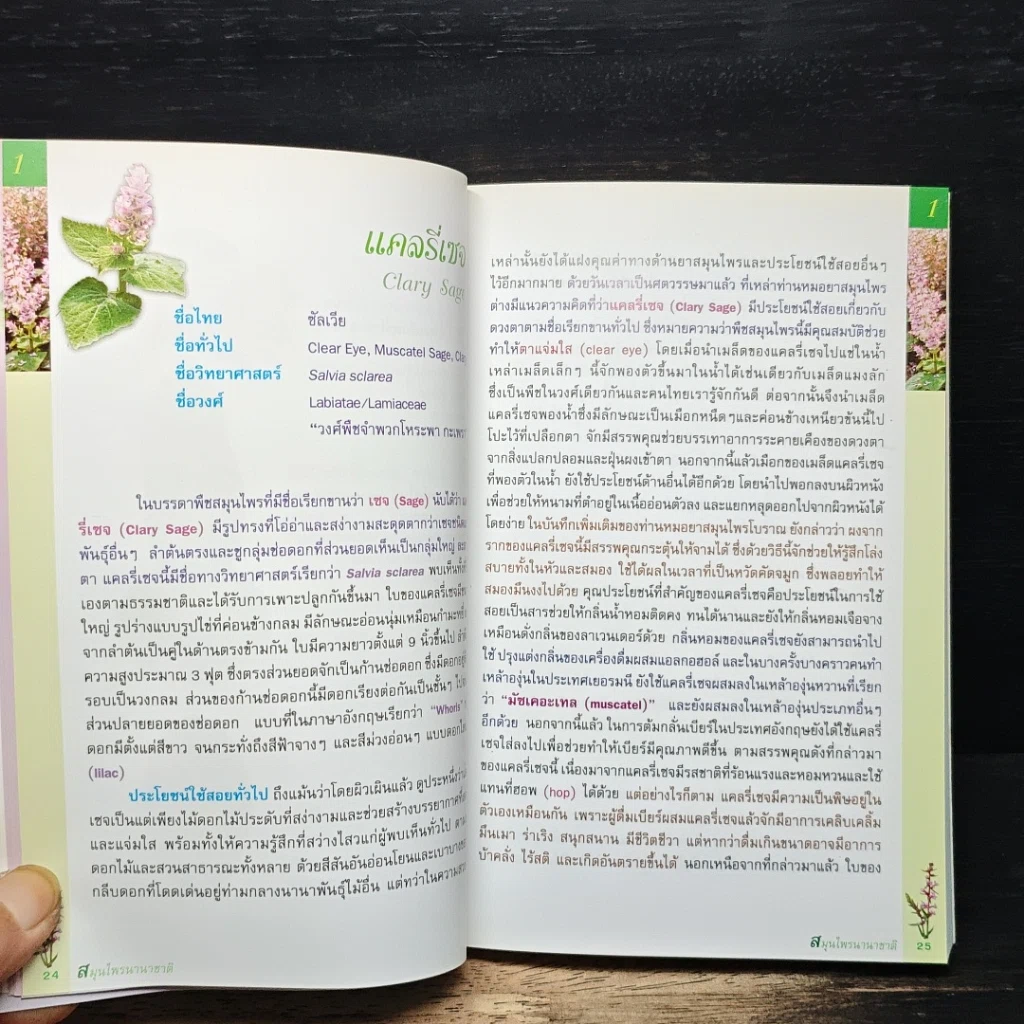 1
แคลรี่เซจ
Clary Sage
ชื่อไทย ซัลเวีย
ชื่อทั่วไป Clear Eye, Muscatel Sage,
ชื่อวิทยาศาสตร์ Salvia sclarea
ชื่อวงศ์ Labiatae/Lamiaceae
“วงศ์พืชจำพวกโหระพา กะเพรา
ในบรรดาพืชสมุนไพรที่มีชื่อเรียกขานว่า เซจ (Sage) นับได้ว่า
รี่เซจ (Clary Sage) มีรูปทรงที่โอ่อ่าและสง่างามสะดุดตากว่าเซจ
พันธุ์อื่นๆ ลำต้นตรงและชูกลุ่มช่อดอกที่ส่วนยอดเห็นเป็นกลุ่มใหญ่
ตา แคลรี่เซจนี้มีชื่อทางวิทยาศาสตร์เรียกว่า Salvia sclarea พบเห็น
เองตามธรรมชาติและได้รับการเพาะปลูกกันขึ้นมา ใบของแคลรี่เซจมี
ใหญ่ รูปร่างแบบรูปไข่ที่ค่อนข้างกลม มีลักษณะอ่อนนุ่มเหมือนกำมะหยี่
จากลำต้นเป็นคู่ในด้านตรงข้ามกัน ใบมีความยาวตั้งแต่ 9 นิ้วขึ้นไป
ความสูงประมาณ 3 ฟุต ซึ่งตรงส่วนยอดจักเป็นก้านช่อดอก ซึ่งมีดอก
รอบเป็นวงกลม ส่วนของก้านช่อดอกนี้มีดอกเรียงต่อกันเป็นชั้นๆ
ส่วนปลายยอดของช่อดอก แบบที่ในภาษาอังกฤษเรียกว่า “Whorls”
ดอกมีตั้งแต่สีขาว จนกระทั่งถึงสีฟ้าจางๆ และสีม่วงอ่อนๆ แบบดอก
(lilac)
ประโยชน์ใช้สอยทั่วไป ถึงแม้นว่าโดยผิวเผินแล้ว ดูประหนึ่งว่า
เซจเป็นแต่เพียงไม้ดอกไม้ประดับที่สง่างามและช่วยสร้างบรรยากาศ
และแจ่มใส พร้อมทั้งให้ความรู้สึกที่สว่างไสวแก่ผู้พบเห็นทั่วไป ตาม
ดอกไม้และสวนสาธารณะทั้งหลาย ด้วยสีสันอันอ่อนโยนและเบาบาง
กลีบดอกที่โดดเด่นอยู่ท่ามกลางนานาพันธุ์ไม้อื่น แต่ทว่าในความ
24 สมุนไพรนานาชาติ
1
เหล่านั้นยังได้แฝงคุณค่าทางด้านยาสมุนไพรและประโยชน์ใช้สอยอื่นๆ
ไว้อีกมากมาย ด้วยวันเวลาเป็นศตวรรษมาแล้ว ที่เหล่าท่านหมอยาสมุนไพร
ต่างมีแนวความคิดที่ว่าแคลรี่เซจ (Clary Sage) มีประโยชน์ใช้สอยเกี่ยวกับ
ดวงตาตามชื่อเรียกขานทั่วไป ซึ่งหมายความว่าพืชสมุนไพรนี้มีคุณสมบัติช่วย
ทำให้ตาแจ่มใส (clear eye) โดยเมื่อนำเมล็ดของแคลรี่เซจไปแช่ในน้ำ
เหล่าเมล็ดเล็กๆ นี้จักพองตัวขึ้นมาในน้ำได้เช่นเดียวกับเมล็ดแมงลัก
ซึ่งเป็นพืชในวงศ์เดียวกันและคนไทยเรารู้จักกันดี ต่อจากนั้นจึงนำเมล็ด
แคลรี่เซจพองน้ำซึ่งมีลักษณะเป็นเมือกหนืดๆและค่อนข้างเหนียวข้นนี้ไป
โปะไว้ที่เปลือกตา จักมีสรรพคุณช่วยบรรเทาอาการระคายเคืองของดวงตา
จากสิ่งแปลกปลอมและฝุ่นผงเข้าตา นอกจากนี้แล้วเมือกของเมล็ดแคลรี่เซจ
ที่พองตัวในน้ำ ยังใช้ประโยชน์ด้านอื่นได้อีกด้วย โดยนำไปพอกลงบนผิวหนัง
เพื่อช่วยให้หนามที่ตำอยู่ในเนื้ออ่อนตัวลง และแยกหลุดออกไปจากผิวหนังได้
โดยง่าย ในบันทึกเพิ่มเติมของท่านหมอยาสมุนไพรโบราณ ยังกล่าวว่า ผงจาก
รากของแคลรี่เซจนี้มีสรรพคุณกระตุ้นให้จามได้ ซึ่งด้วยวิธีนี้จักช่วยให้รู้สึกโล่ง
สบายทั้งในหัวและสมอง ใช้ได้ผลในเวลาที่เป็นหวัดคัดจมูก ซึ่งพลอยทำให้
สมองมึนงงไปด้วย คุณประโยชน์ที่สำคัญของแคลรี่เซจคือประโยชน์ในการใช้
สอยเป็นสารช่วยให้กลิ่นน้ำหอมติดคง ทนได้นานและยังให้กลิ่นหอมเจือจาง
เหมือนดั่งกลิ่นของลาเวนเดอร์ด้วย กลิ่นหอมของแคลรี่เซจยังสามารถนำไป
ใช้ ปรุงแต่งกลิ่นของเครื่องดื่มผสมแอลกอฮอล์ และในบางครั้งบางคราวคนทำ
เหล้าองุ่นในประเทศเยอรมนี ยังใช้แคลรี่เซจผสมลงในเหล้าองุ่นหวานที่เรียก
ว่า “มัซเคอะเทล (muscatel)” และยังผสมลงในเหล้าองุ่นประเภทอื่นๆ
อีกด้วย นอกจากนี้แล้ว ในการต้มกลั่นเบียร์ในประเทศอังกฤษยังได้ใช้แคลรี่
เซจใส่ลงไปเพื่อช่วยทำให้เบียร์มีคุณภาพดีขึ้น ตามสรรพคุณดังที่กล่าวมา
ของแคลรี่เซจนี้ เนื่องมาจากแคลรี่เซจมีรสชาติที่ร้อนแรงและหอมหวานและใช้
แทนที่ฮอพ (hop) ได้ด้วย แต่อย่างไรก็ตาม แคลรี่เซจมีความเป็นพิษอยู่ใน
ตัวเองเหมือนกัน เพราะผู้ดื่มเบียร์ผสมแคลรี่เซจแล้วจักมีอาการเคลิบเคลิ้ม
มึนเมา ร่าเริง สนุกสนาน มีชีวิตชีวา แต่หากว่าดื่มเกินขนาดอาจมีอาการ
บ้าคลั่ง ไร้สติ และเกิดอันตรายขึ้นได้ นอกเหนือจากที่กล่าวมาแล้ว ใบของ
สมุนไพรนานาชาติ 25